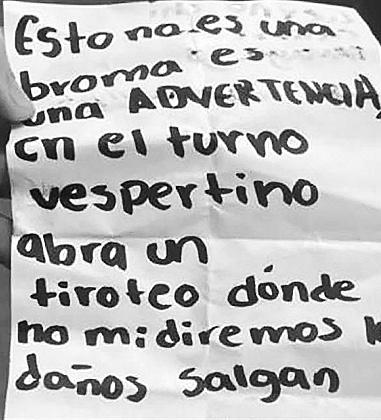 Esto no es una
broma es
una ADVERTENCIA,
en el turno
vespertino
abra un
tiroteo dónde
no midiremos l
daños salgan